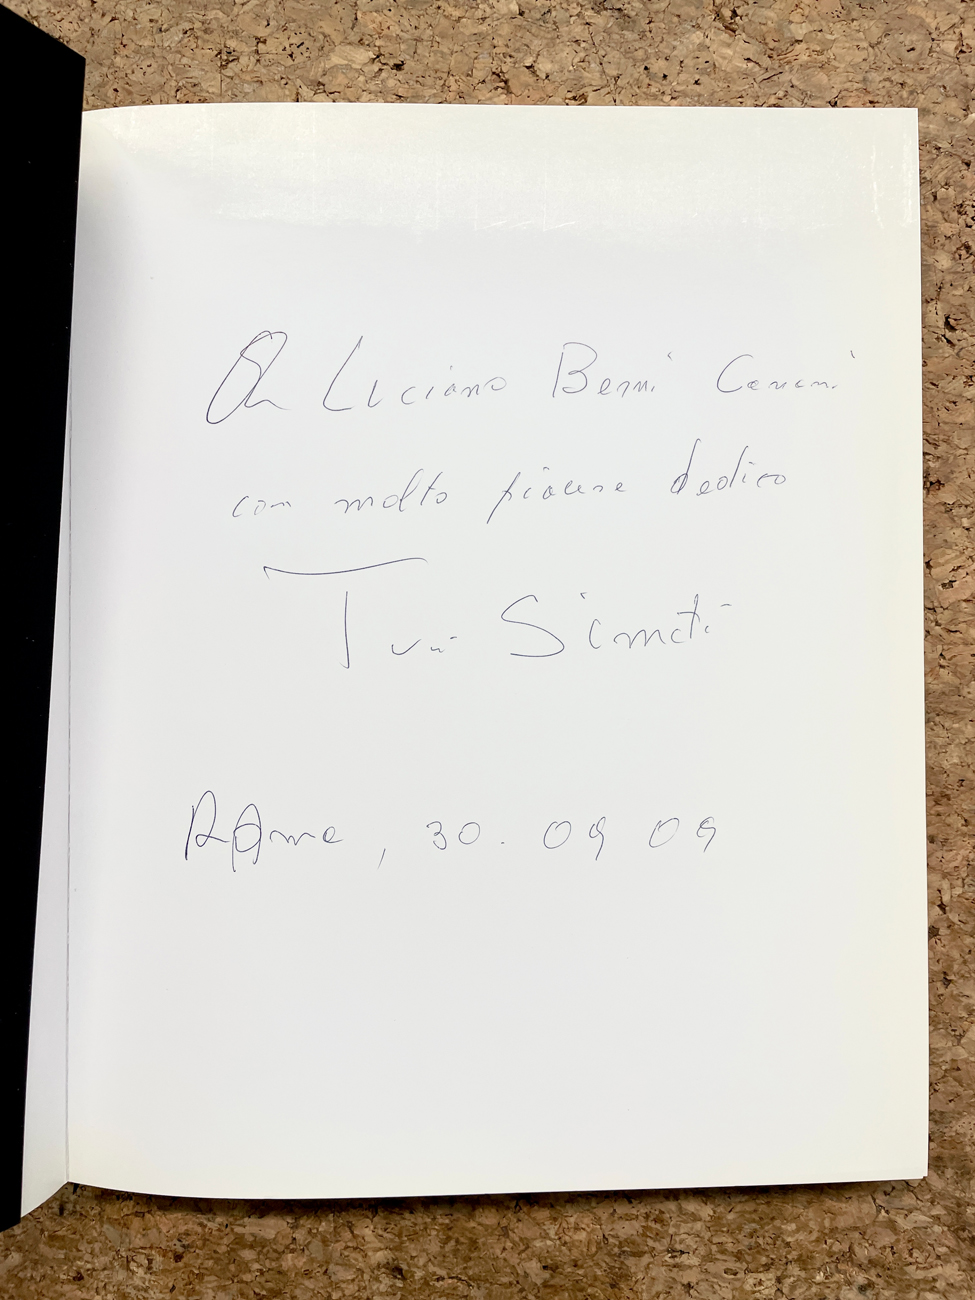 A Luciano Berni Canani
con molto piacere dedico
Turi Simeti
Roma, 30. 09 09